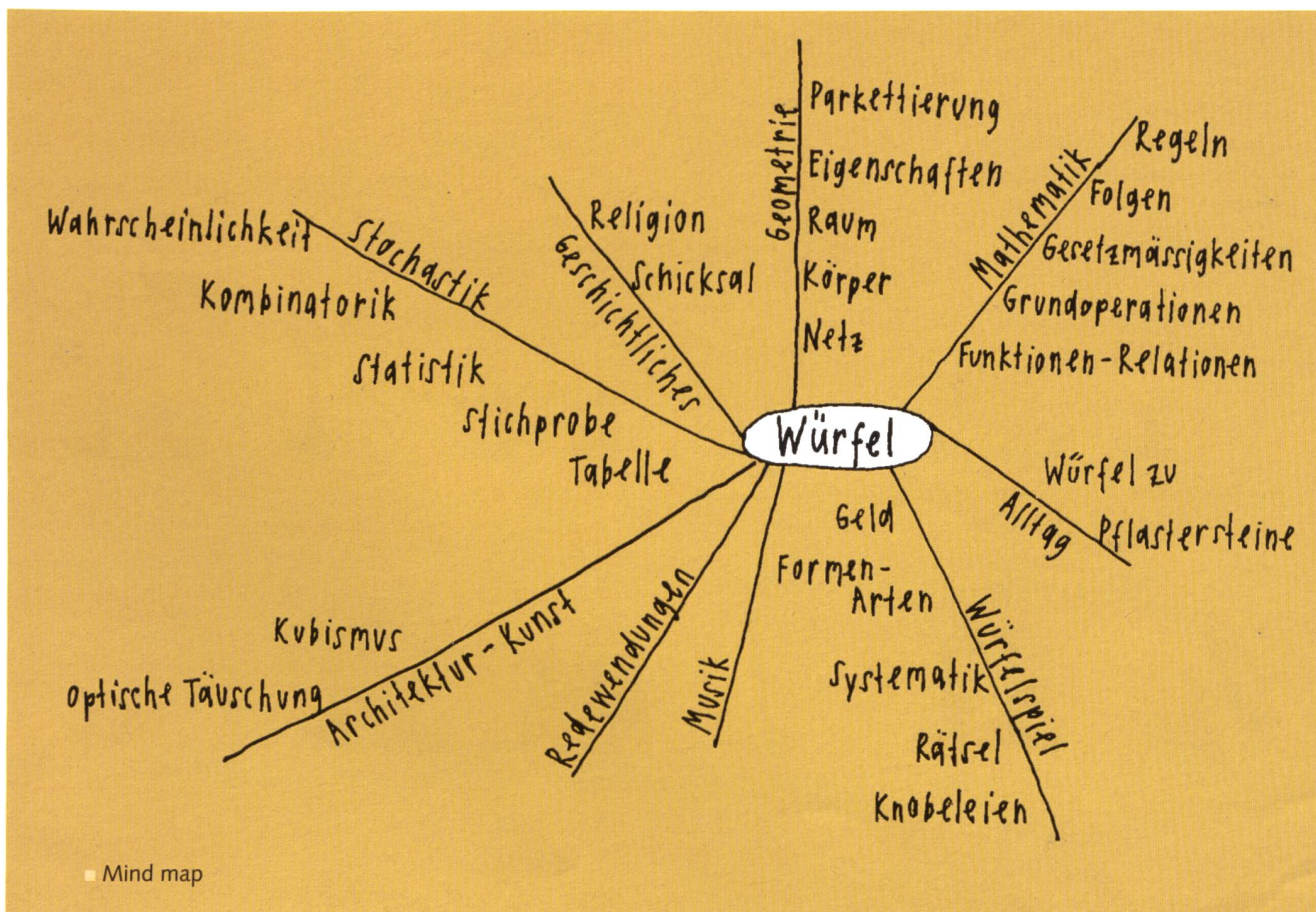 Würfel
Geometrie
Parkettierung
Eigenschaften
Raum
Körper
Netz
Mathematik
Regeln
Folgen
Gesetzmässigkeiten
Grundoperationen
Funktionen-Relationen
Alltag
Würfel zu
Pflastersteine
Würfelspiel
Geld
Formen-
Arten
Systematik
Rätsel
Knobeleien
Musik
Redewendungen
Architektur-Kunst
Kubismus
Optische Täuschung
Stochastik
Wahrscheinlichkeit
Kombinatorik
Statistik
Stichprobe
Tabelle
Geschichtliches
Religion
Schicksal
Mind map